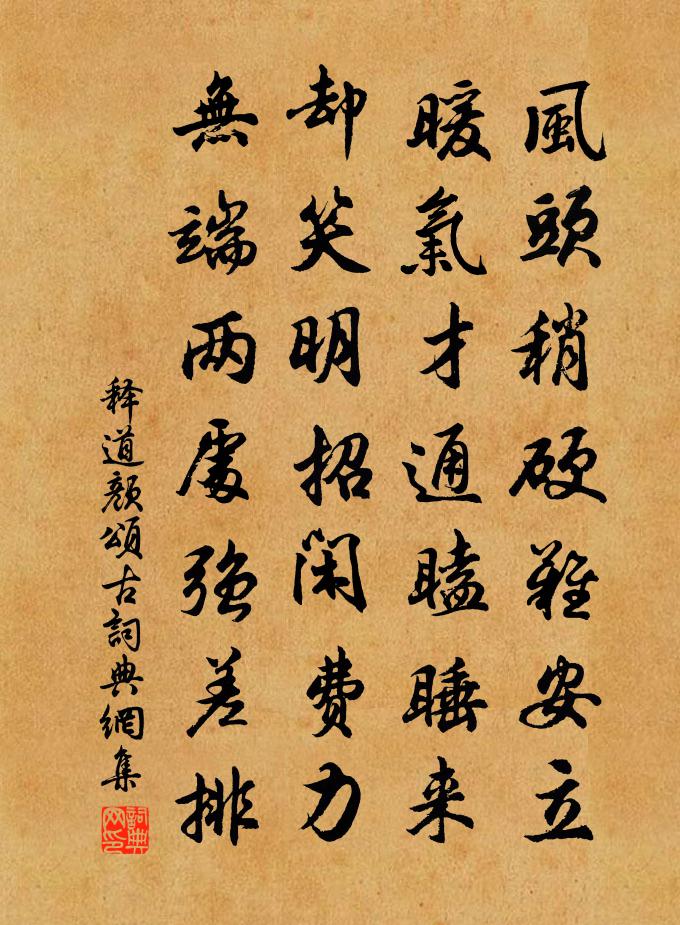 風頭稍硬難安立
暖氣才通瞌睡来
却笑明招閑費力
無端两處強差排
释道顏頌古詞典網集
詞典网印